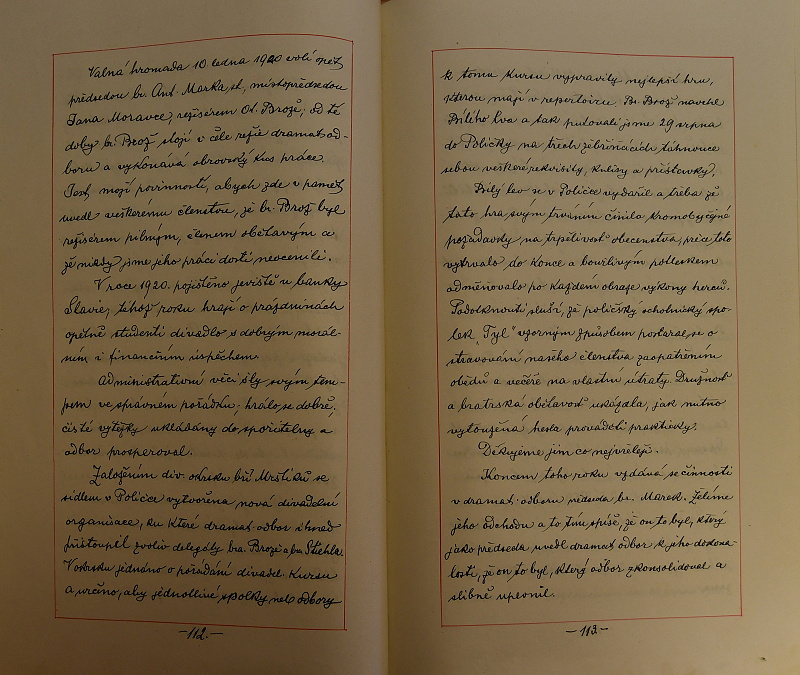 Valná hromada 10 ledna 1920 volí opět
předsedou br. Ant. Marka st., místopředsedou
Jana Moravce, režisérem Ot. Brože; od té
doby br. Brož stojí v čele režie dramat. od-
boru a vykonává obrovský kus práce.
Jest mojí povinností, abych zde v paměť
uvedl veškerému členstvu, že br. Brož byl
režisérem pilným, členem obětavým a
že nikdy jsme jeho práci dosti neocenili.
V roce 1920. pojištěno jeviště u banky
Slavie, téhož roku hrají o prázdninách
opětně studenti divadlo s dobrým morál-
ním i finančním úspěchem.
Administrativní věci šly svým tem-
pem ve správném pořádku, hrálo se dobře,
čisté výtěžky ukládány do spořitelny a
odbor prosperoval.
Založením div. okrsku bří Mrštíků se
sídlem v Poličce vytvořena nová divadelní
organisace, ku které dramat. odbor ihned
přistoupil zvoliv delegáty bra. Brože a bra. Stiehla.
V okrsku jednáno o pořádání divadel. kursu
a určeno, aby jednotlivé spolky neb odbory
-112.-
k tomu kursu vypravily nejlepší hru,
kterou mají v repertoiru. Br. Brož navrhl
Bílého lva a tak putovali jsme 29 srpna
do Poličky na třech žebřiňácích táhnouce
sebou veškeré rekvisity, kulisy a přístavky.
Bílý lev se v Poličce vydařil a třeba že
tato hra svým trváním činila kromobyčejné
požadavky na trpělivost obecenstva, přece toto
vytrvalo do konce a bouřlivým potleskem
odměňovalo po každém obraze výkony herců.
Podotknouti sluší, že poličský ochotnický spo-
lek „Tyl" vzorným způsobem postaral se o
stravování našeho členstva zaopatřením
obědů a večeře na vlastní útraty. Družnost
a bratrská obětavost ukázala, jak nutno
vytoužená hesla prováděti prakticky.
Děkujeme jim co nejvřeleji.
Koncem toho roku vzdává se činnosti
v dramat. odboru předseda br. Marek. Želíme
jeho odchodu a to tím spíše, že on to byl, který
jako předseda uvedl dramat. odbor k jeho dokona-
losti, že on to byl, který odbor zkonsolidoval a
slibně upevnil.
-113-